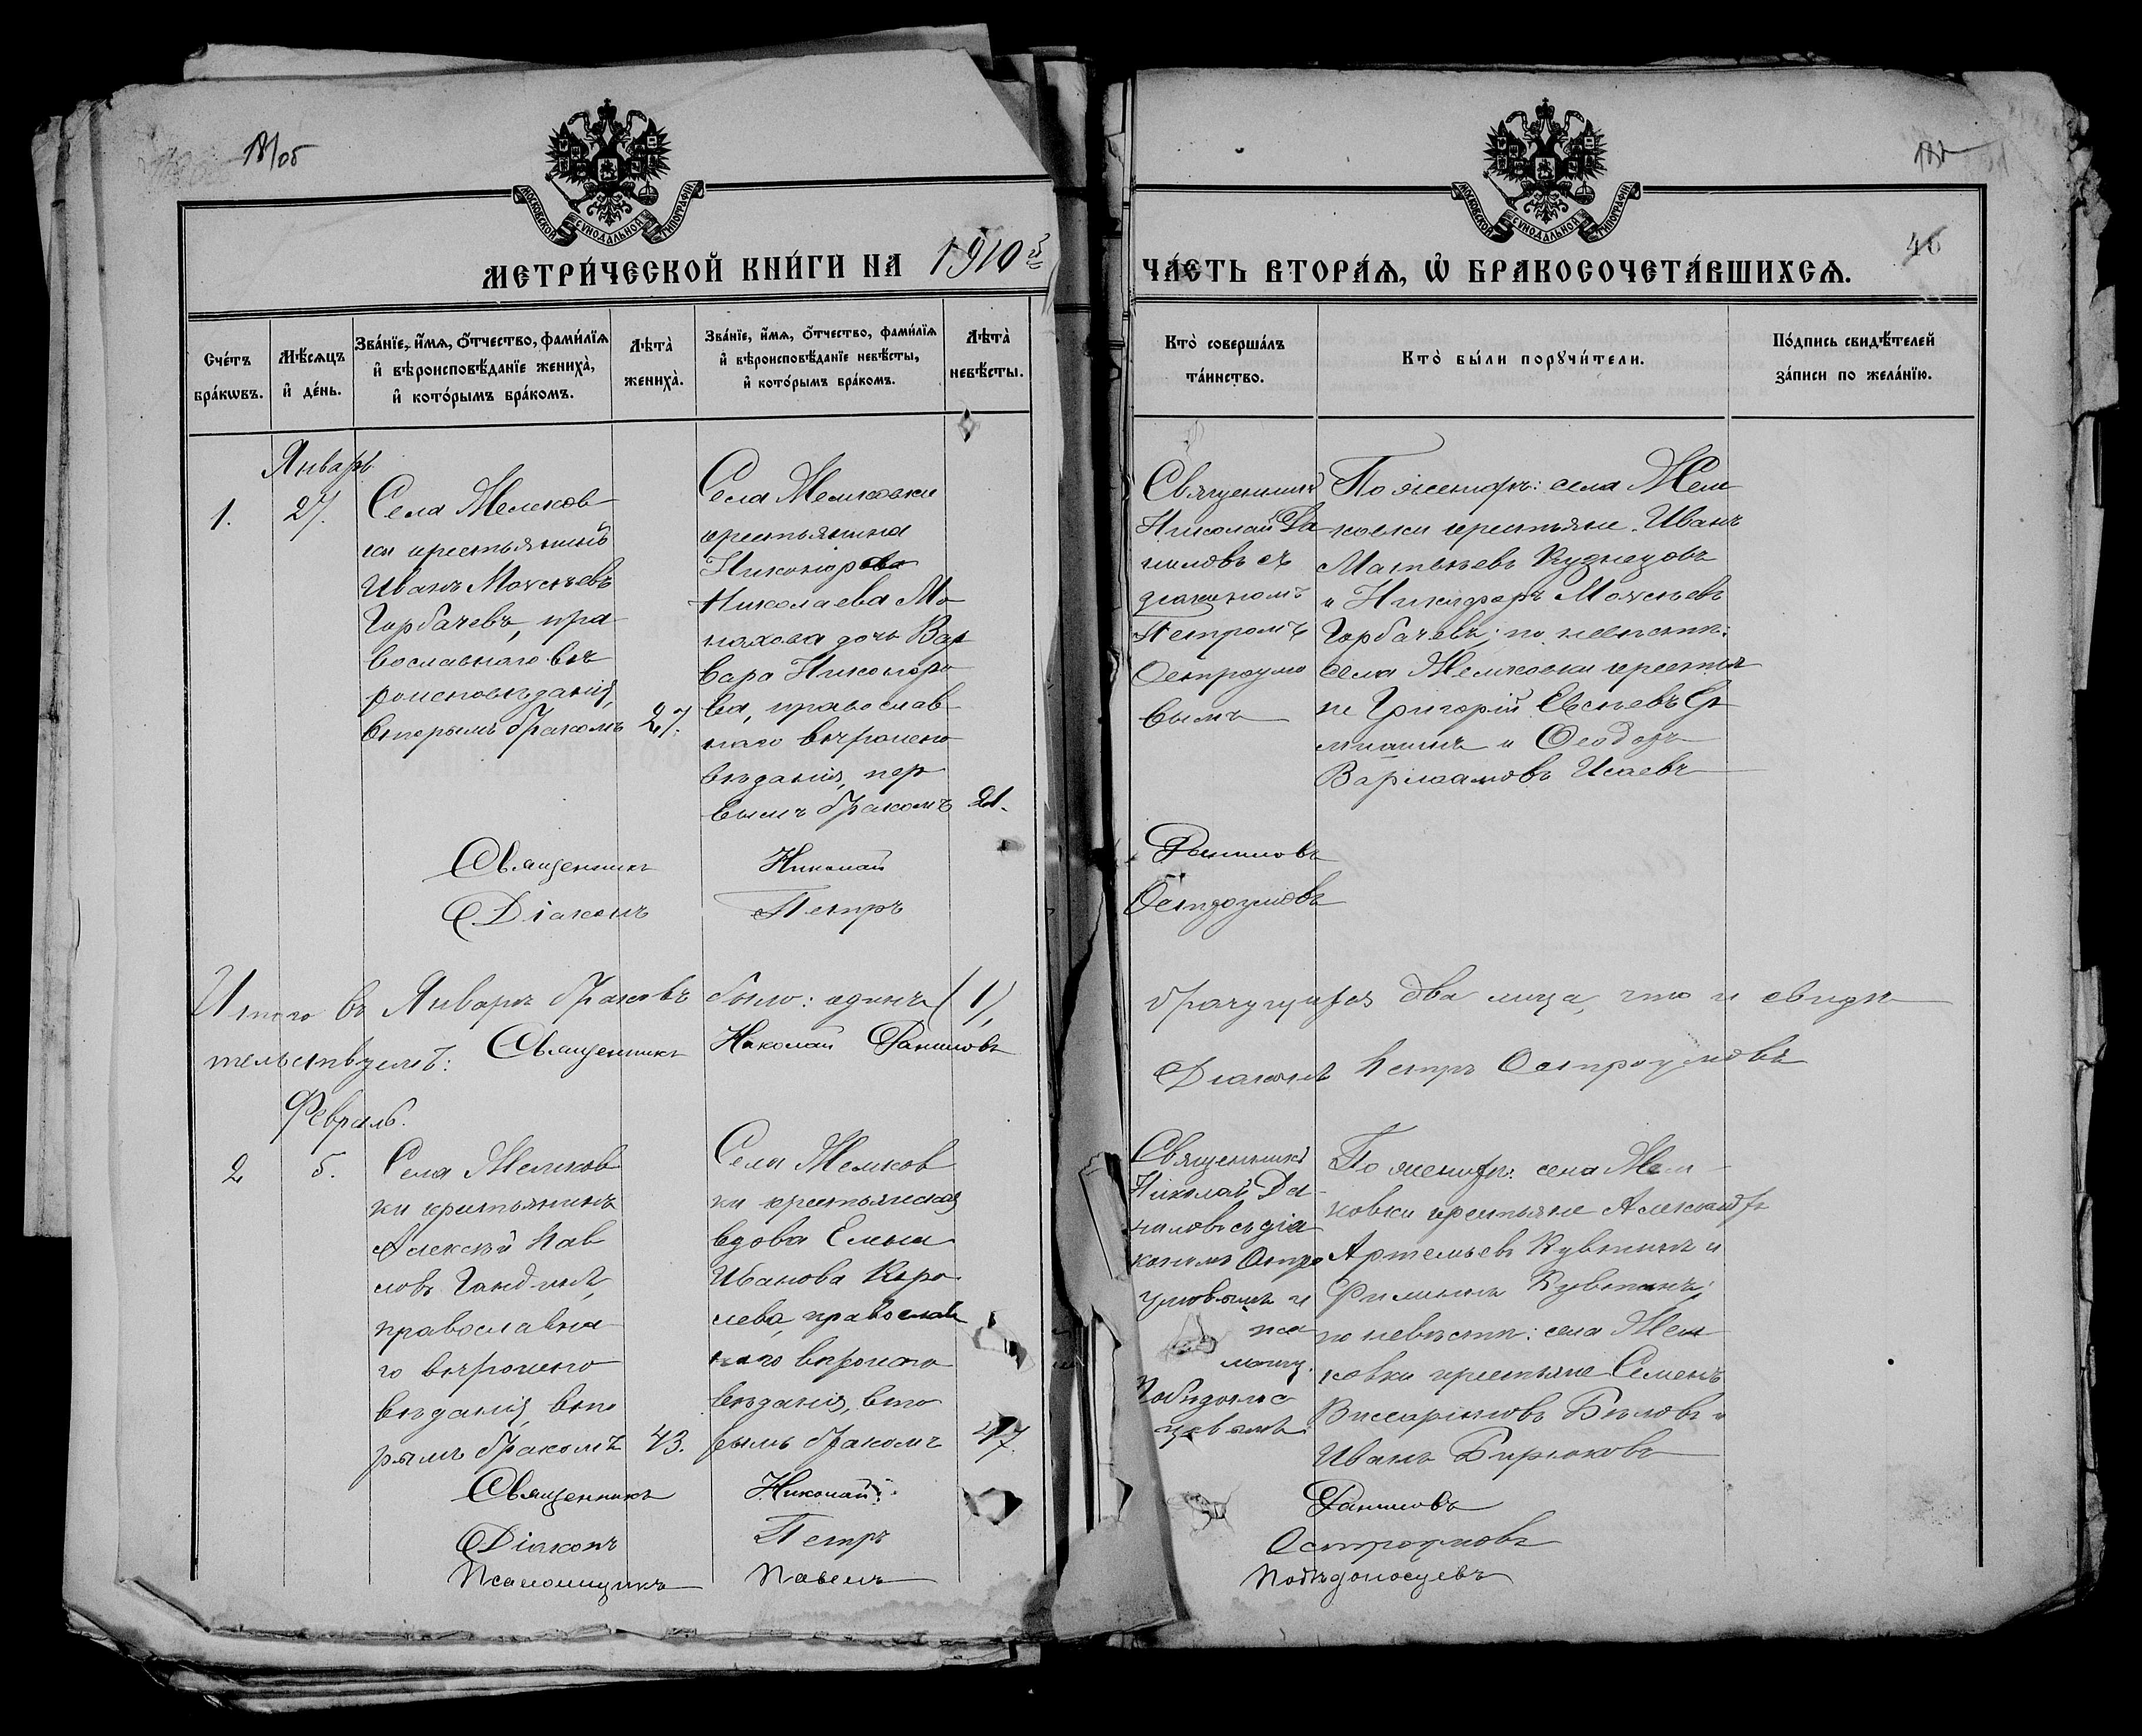 181об
МОСКОВСКОЙ СУНОДАЛЬНОЙ ТИПОГРАФІИ
МЕТРИ́ЧЕСКОЙ КНИ́ГИ НА 1910 й
Сче́тъ бра́кѡвъ.
Мѣ́сяцъ и҆ де́нь.
Зва́нїе, и҆́мя, ѻ҆́тчество, фами́лїя
и҆ вѣроисповѣ́данїе жениха̀,
и҆ кото́рымъ бра́комъ.
Лѣта̀ жениха̀.
Зва́нїе, и҆́мя, ѻ҆́тчество, фами́лїя
и҆ вѣроисповѣ́данїе невѣ́сты,
и҆ кото́рымъ бра́комъ.
Лѣта̀ невѣ́сты.
Январь
1.
27.
Села Мелков
ки крестьянинъ
Иванъ Моисѣевъ
Горбачевъ, пра
вославнаго вѣ
роисповѣданія,
вторымъ бракомъ
27.
Села Мелковки
крестьянина
Никонора
Николаева Мо
нахова дочь Вар
вара Никоноро
ва, православ
наго вѣроиспо
вѣданія, пер
вымъ бракомъ
21.
Священникъ Николай
Діаконъ Петръ
Итого въ Январѣ браковъ было: одинъ (1),
тельствуемъ: Священникъ Николай Даниловъ
Февраль.
2
5.
Села Мелков
ки крестьянинъ
Алексѣй Пав
ловъ
православна
го вѣроиспо
вѣданія, вто
рымъ бракомъ
43.
Села Мелков
ки крестьянская
вдова Елена
Иванова Коро
лева, православ
наго вѣроиспо
вѣданія, вто
рымъ бракомъ
47.
Священникъ Николай
Діаконъ Петръ
Псаломщикъ Павелъ
МОСКОВСКОЙ СУНОДАЛЬНОЙ ТИПОГРАФІИ
46
ЧА́СТЬ ВТОРА́Я, Ѡ҆ БРАКОСОЧЕТА́ВШИХСЯ.
Кто̀ соверша́лъ
та́инство.
Кто̀ бы́ли порꙋчи́тели.
По́дпись свидѣ́телей
за́писи по жела́нїю.
Священникъ
Николай Да
ниловъ съ
діакономъ
Петромъ
Остроумо
вымъ
По женихѣ: села Мел
ковки крестьяне Иванъ
Матвѣевъ Кузнецовъ
и Никифоръ Моисѣевъ
Горбачевъ; по невѣстѣ:
села Мелковки крестья
не Григорій Евсѣевъ
и Ѳеодоръ
Варлаамовъ Исаевъ
Даниловъ
Остроумовъ
брачущихся два лица, что и свидѣ
Діаконъ Петръ Остроумовъ
Священникъ
Николай Да
ниловъ съ діа
кономъ Остро
умовымъ и
пса
ломщ.
Побѣдонос
цевымъ.
По женихѣ: села Мел
ковки крестьяне Александръ
Артемьевъ Кувшинъ и
Филиппъ Кувшинъ;
по невѣстѣ: села Мел
ковки крестьяне Семенъ
Виссаріоновъ Бѣловъ и
Иванъ Бирюковъ
Даниловъ
Остроумовъ
Побѣдоносцевъ